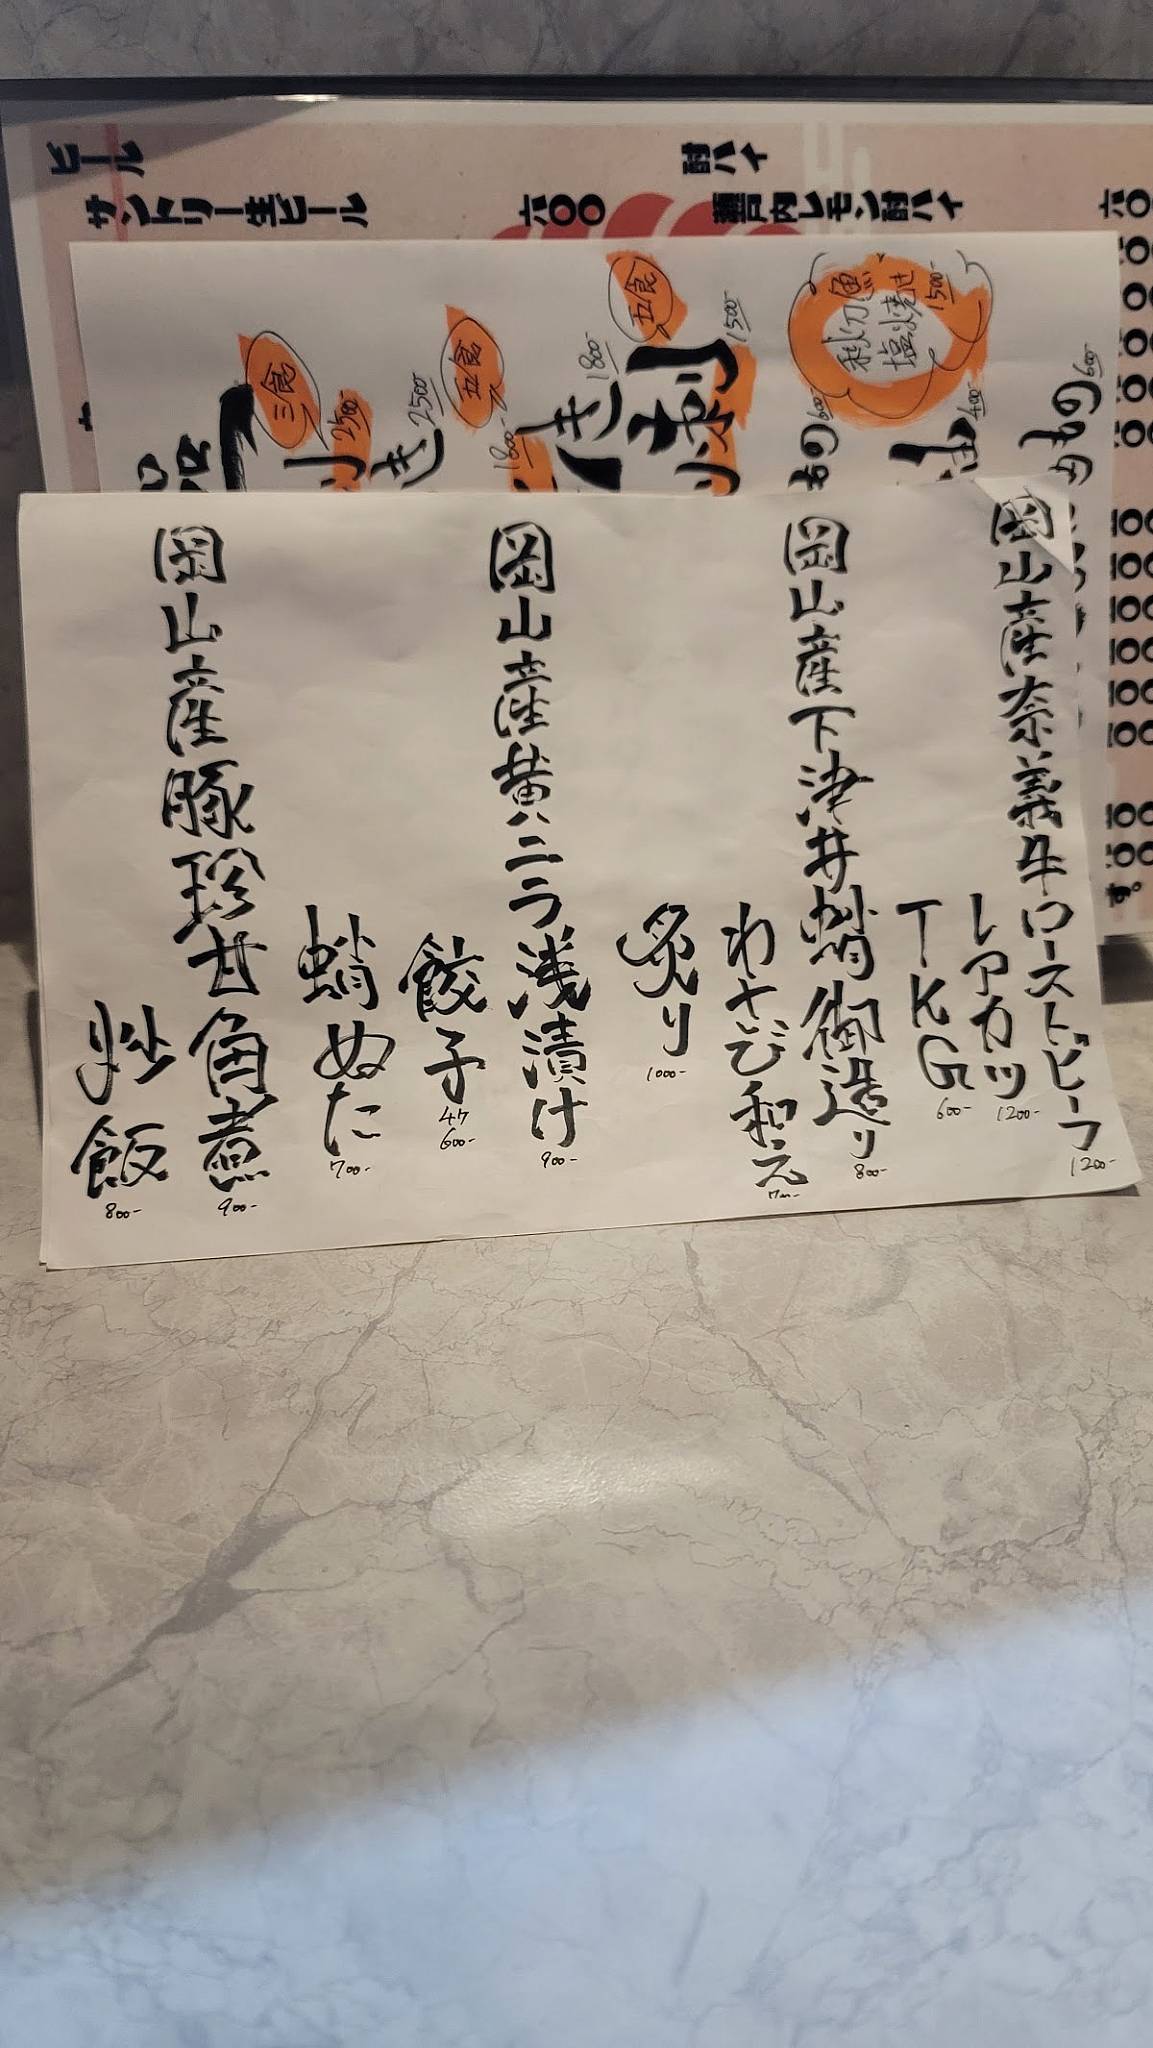 岡山産奈義牛ローストビーフ
1200-
レアカツ
1200-
TKG
600-
岡山産下津井蛸御造り
800-
わさび和え
炙り
1000-
岡山産黄ニラ浅漬け
900-
餃子
4ケ
600-
蛸ぬた
700-
岡山産豚珍甘角煮
900-
炒飯
800-
ビール
サントリー生ビール
六〇〇
酎ハイ
瀬戸内レモン酎ハイ
秋刀魚
塩焼き
1500-
五食
1500-
1800-
五食
1800-
2500-
三食
2500-
もの
600-
400-
もの
600-